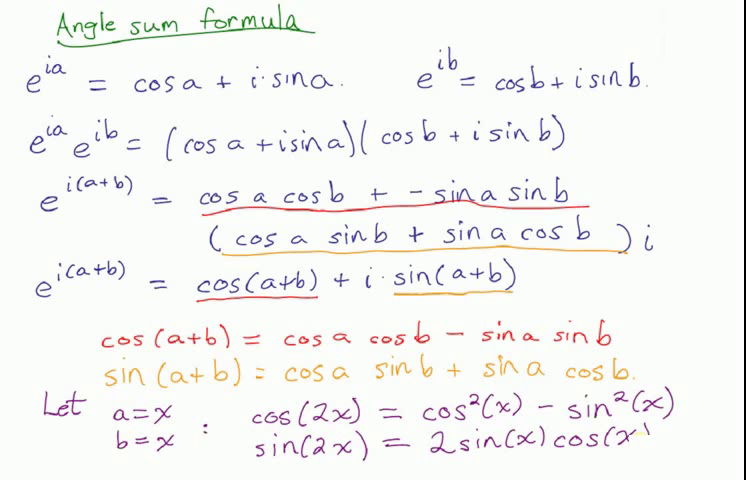 Angle sum formula
e^{ia} = cos a + i · sin a. e^{ib} = cos b + i sin b.
e^{ia} e^{ib} = (cos a + i sin a)(cos b + i sin b)
e^{i(a+b)} = cos a cos b + - sin a sin b
(cos a sin b + sin a cos b) i
e^{i(a+b)} = cos(a+b) + i · sin(a+b)
cos (a+b) = cos a cos b - sin a sin b
sin (a+b) = cos a sin b + sin a cos b.
Let a = x : cos(2x) = cos²(x) - sin²(x)
b = x sin(2x) = 2 sin(x) cos(x)